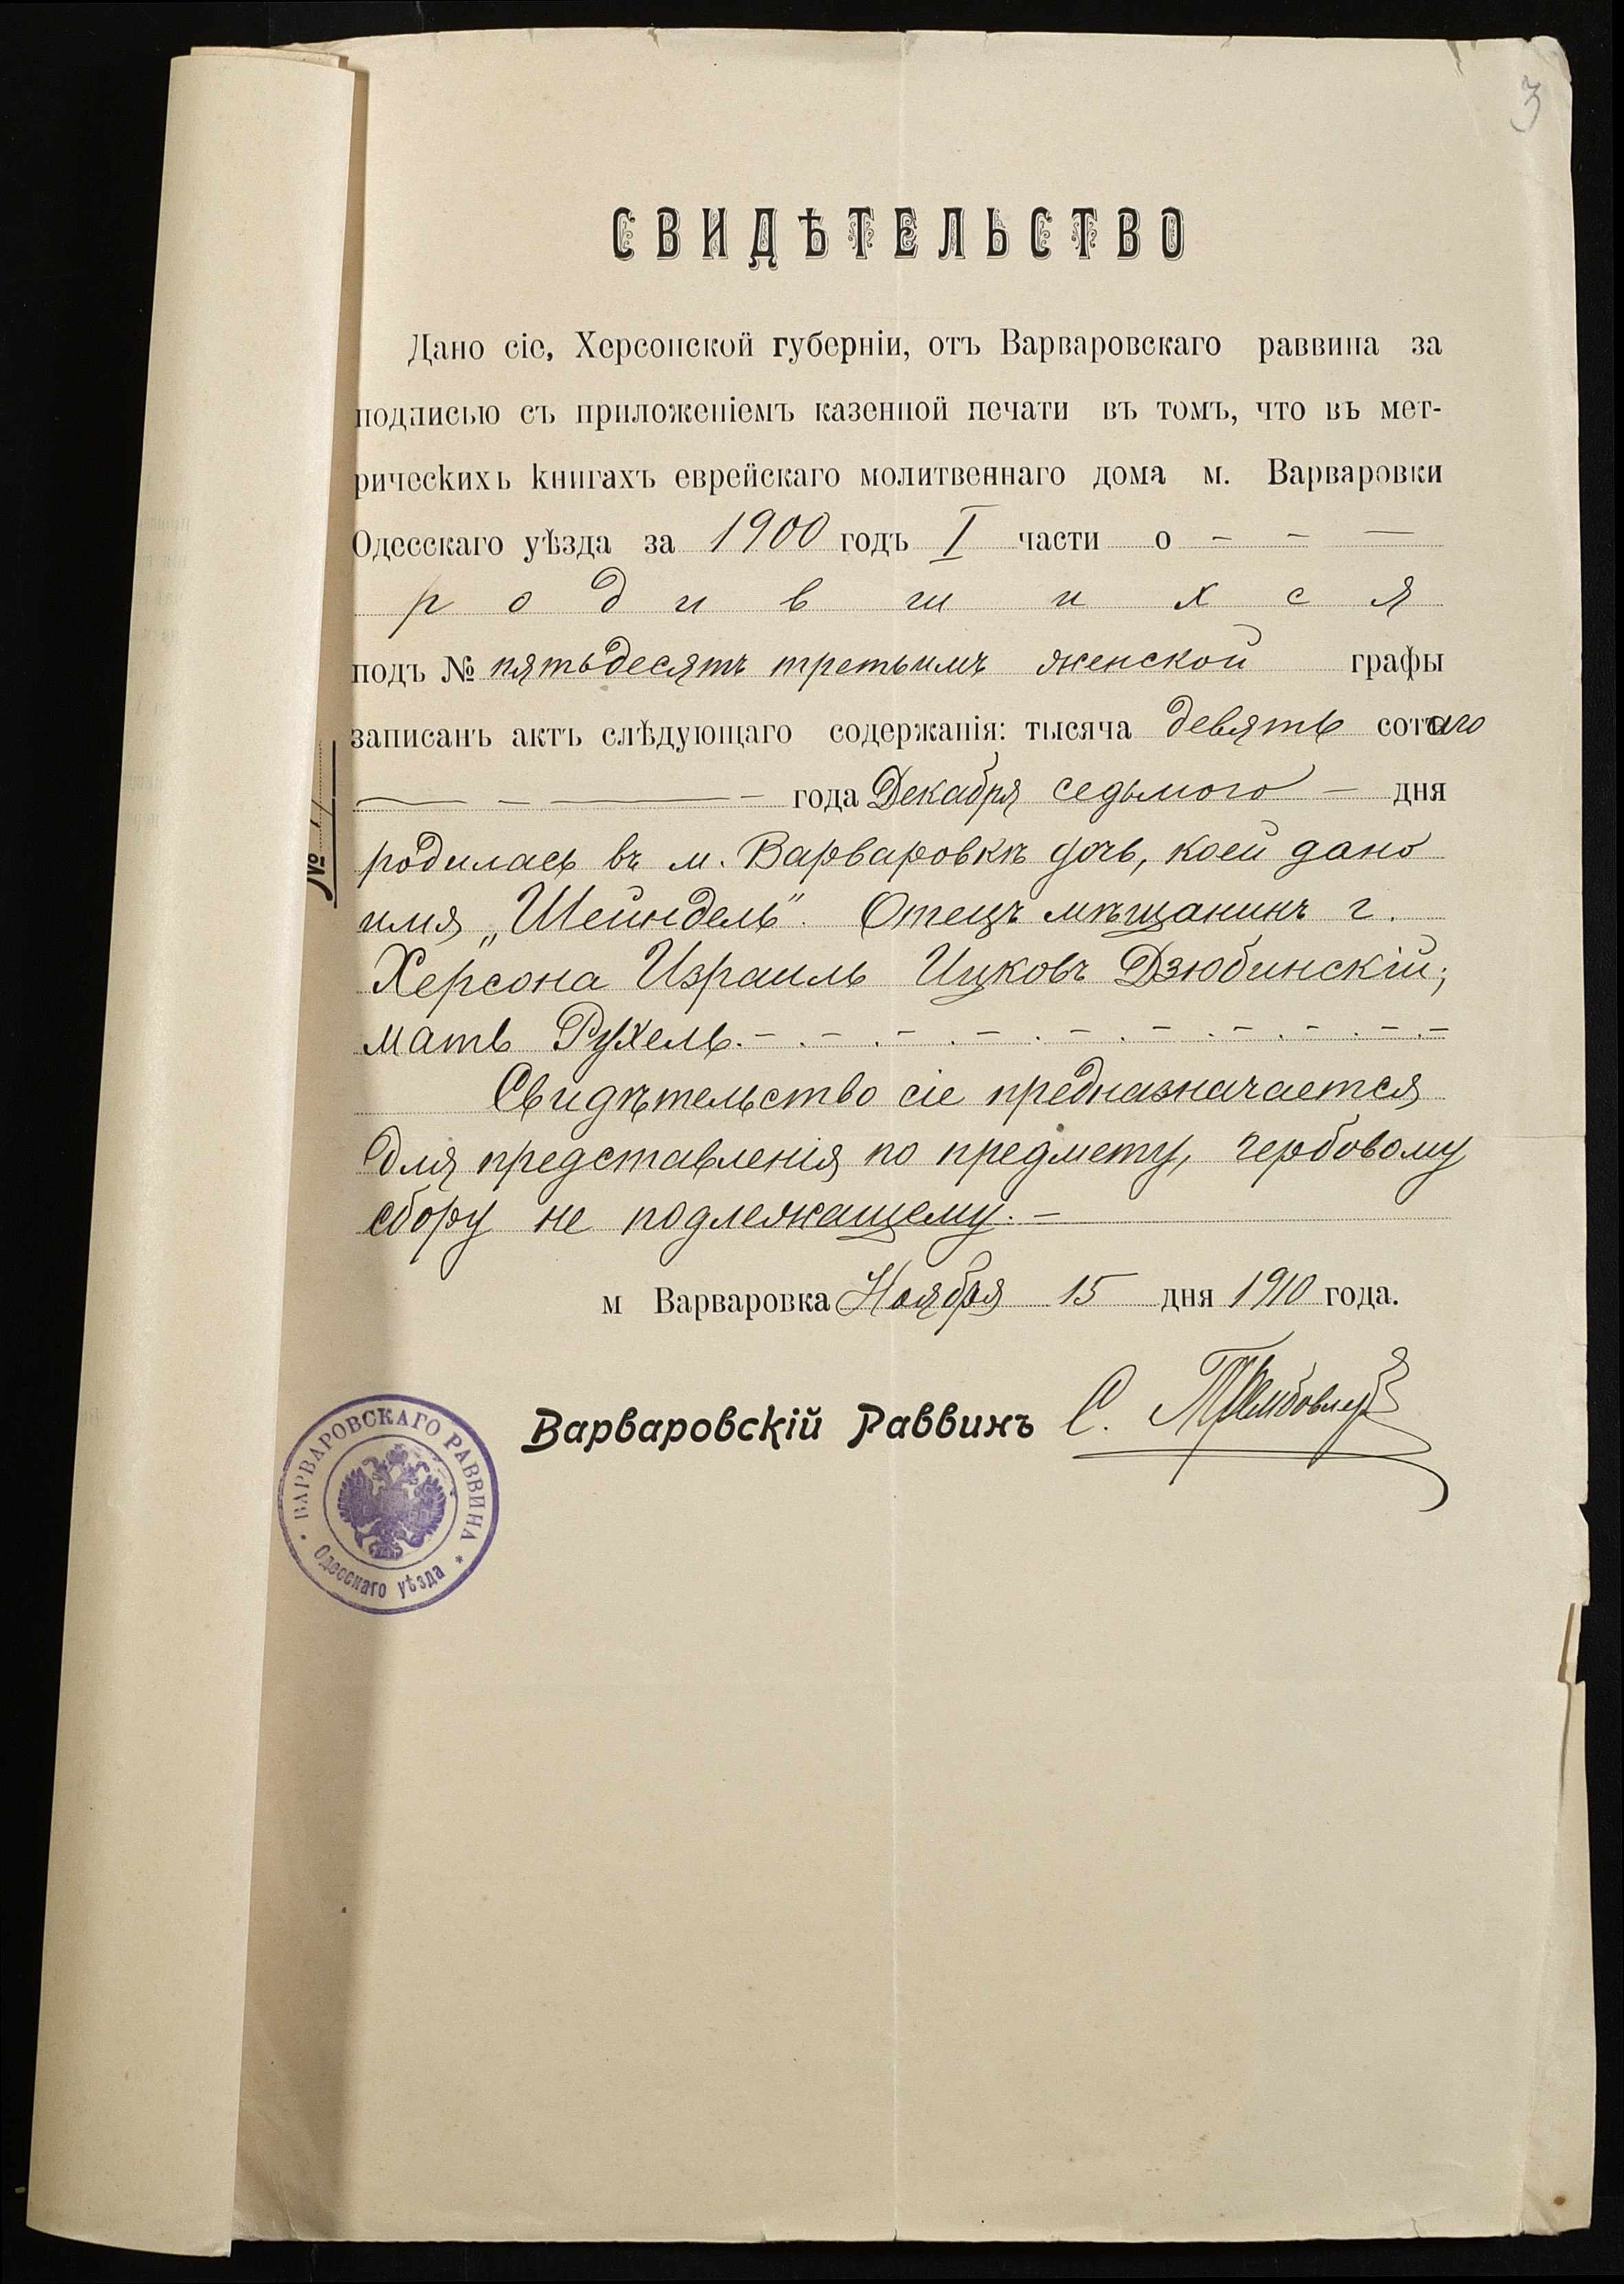 3
СВИДѢТЕЛЬСТВО
Дано сіе, Херсонской губерніи, отъ Варваровскаго раввина за
подписью съ приложеніемъ казенной печати въ томъ, что въ мет-
рическихъ книгахъ еврейскаго молитвеннаго дома м. Варваровки
Одесскаго уѣзда за 1900 годъ I части о - - —
родившихся
подъ № пятьдесятъ третьимъ женской графы
записанъ актъ слѣдующаго содержанія: тысяча девять сотаго
— - — - года Декабря седьмого - дня
родилась въ м. Варваровкѣ дочь, коей дано
имя „Шейндель". Отецъ мѣщанинъ г.
Херсона Израиль Ицковъ Дзюбинскій;
мать Рухель. - . - . - . - . - . - . - . - . - . -
Свидѣтельство сіе предназначается
для представленія по предмету, гербовому
сбору не подлежащему. -
м Варваровка Ноября 15 дня 1910 года.
Варваровскій Раввинъ С.
ВАРВАРОВСКАГО РАВВИНА
Одесскаго уѣзда
№